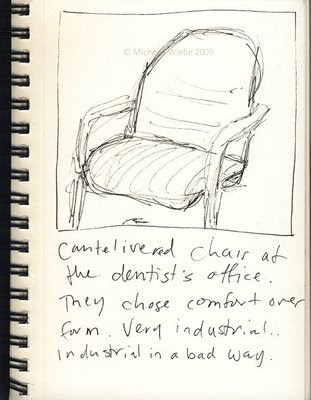 © Michelle Wiebe 2009
Cantelivered chair at
the dentist's office.
They chose comfort over
form. Very industrial..
Industrial in a bad way.